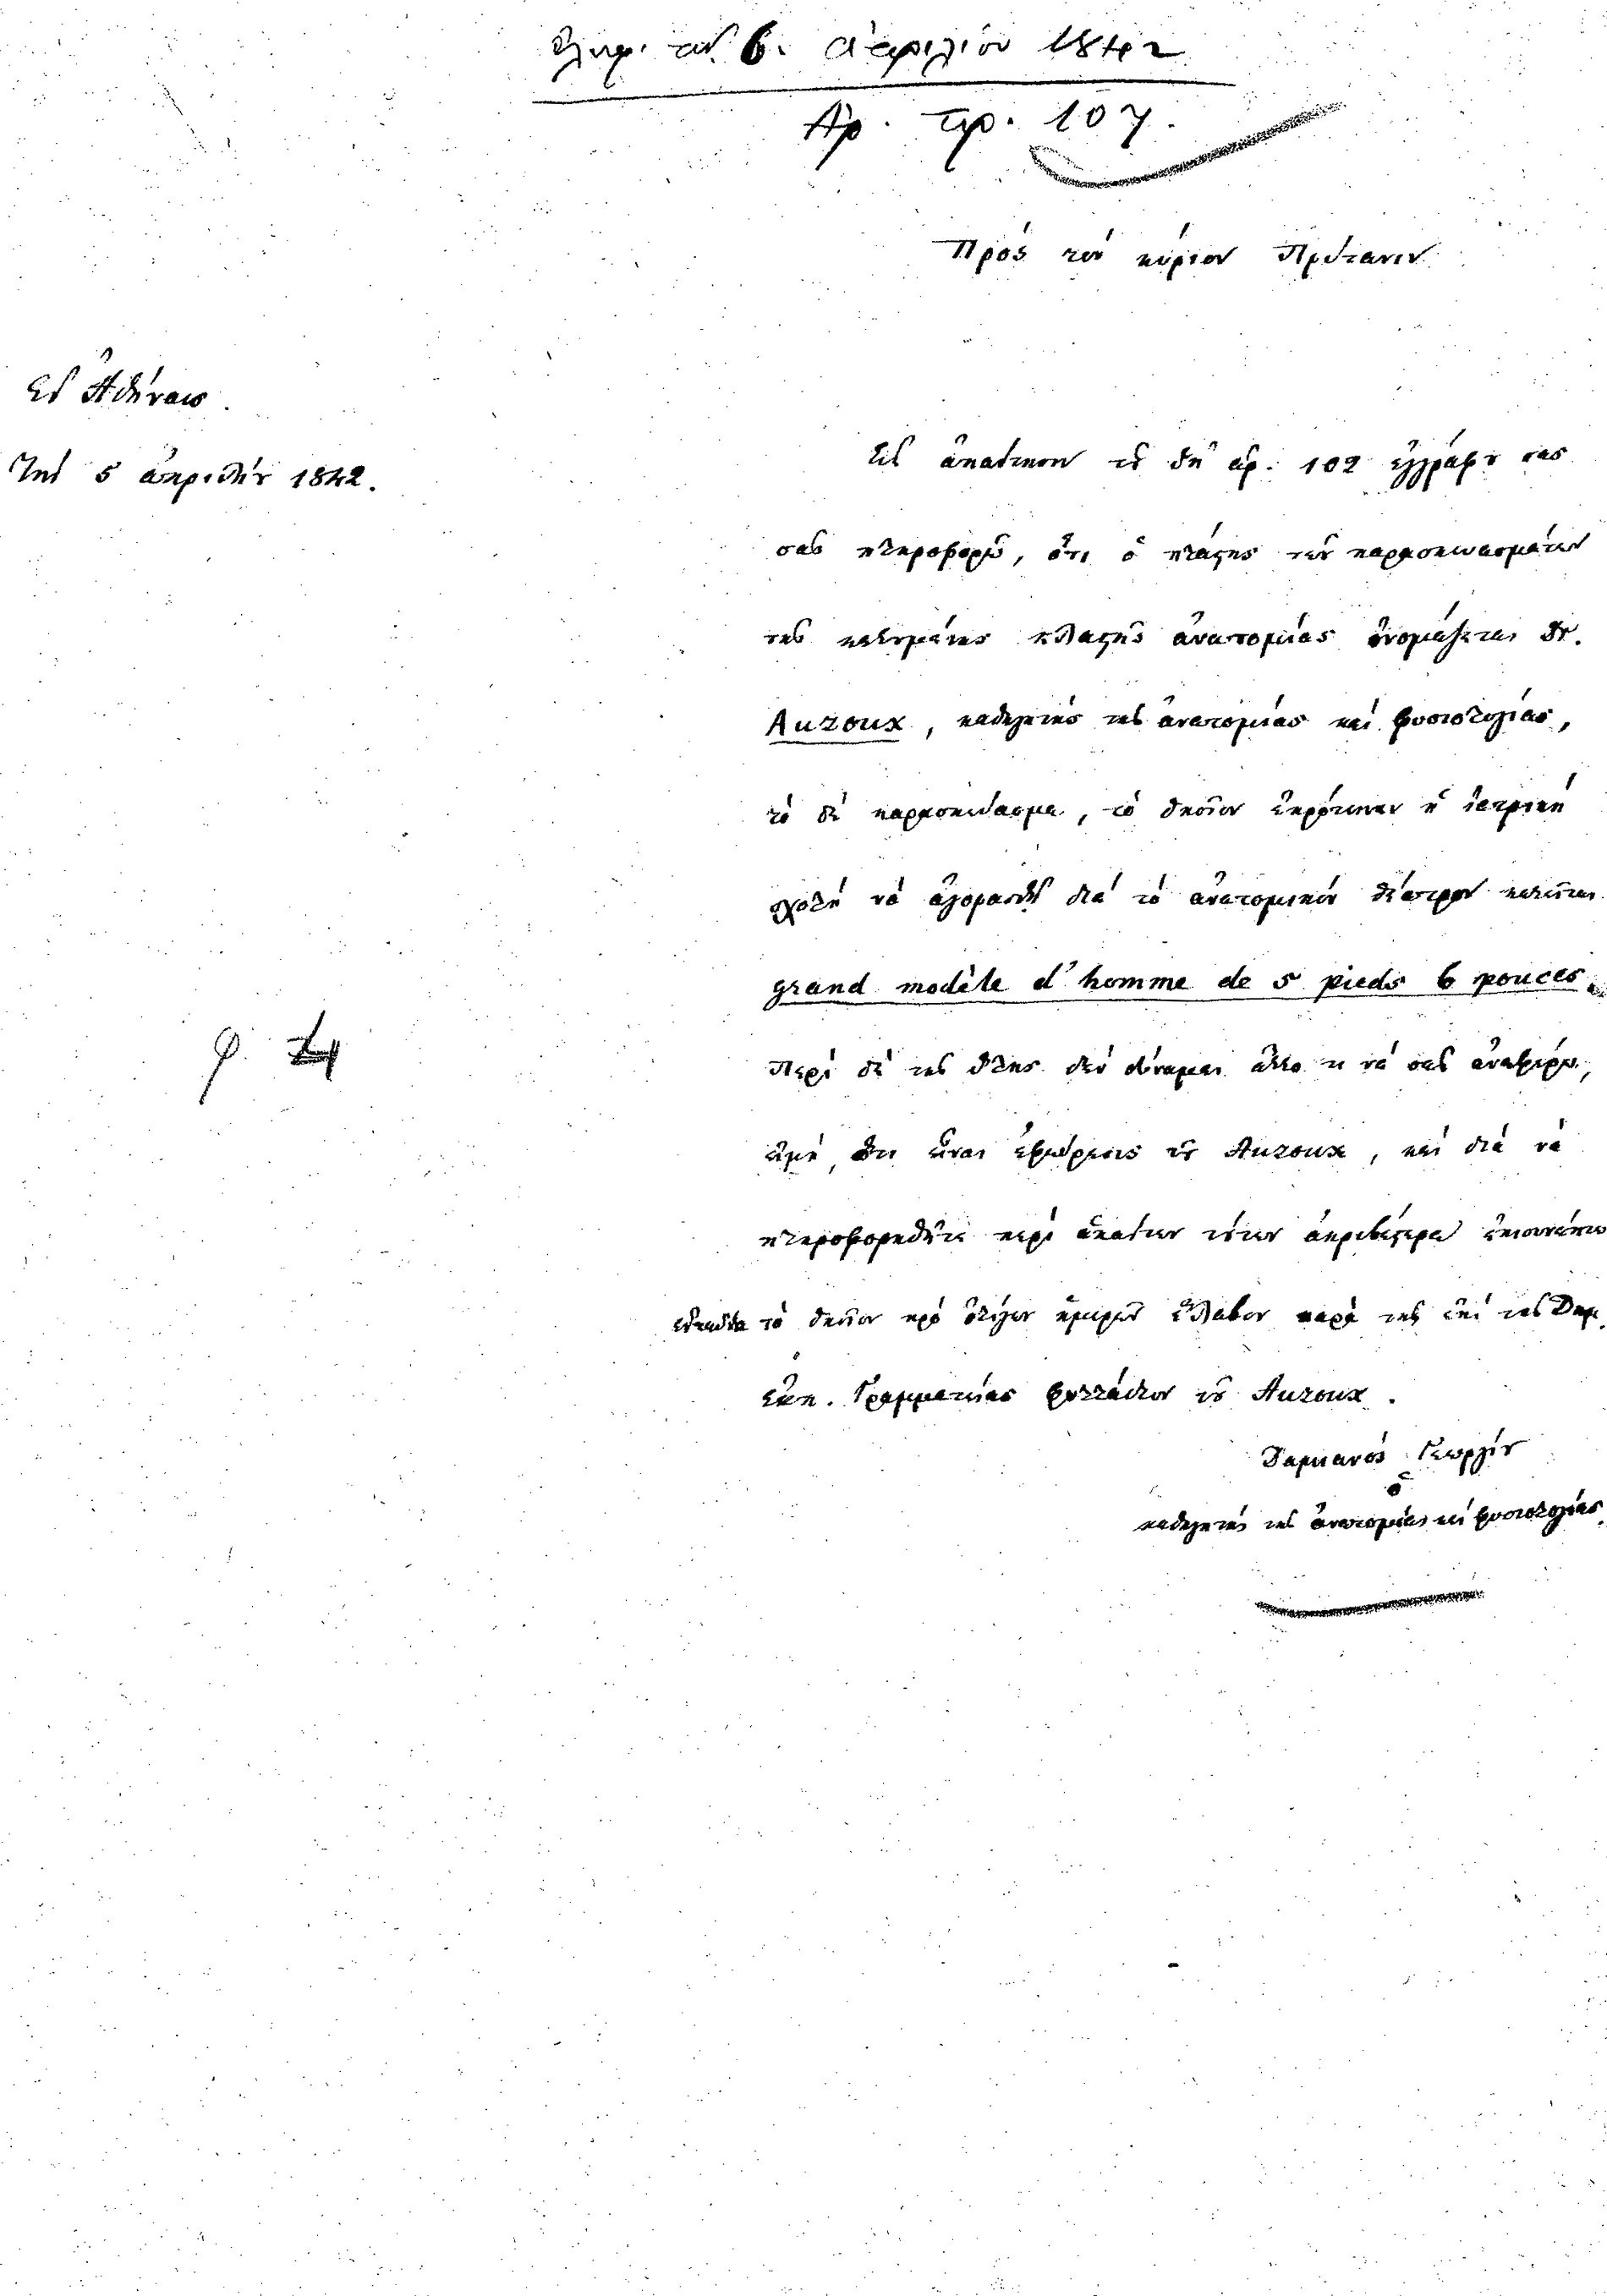 ἐλήφ. τὴν 6. ἀπριλίου 1842
Ἀρ. πρ. 107.
Πρὸς τὸν κύριον Πρύτανιν
Ἐν Ἀθήναις
Τὴν 5 ἀπριλίου 1842.
Εἰς ἀπάντησιν τοῦ ὑπ' ἀρ. 102 ἐγγράφου σας
σας πληροφορῶ, ὅτι ὁ πλάστης τῶν παρασκευασμάτων
τῆς καλουμένης πλαστῆς ἀνατομίας ὀνομάζεται Dr.
Auzoux, καθηγητὴς τῆς ἀνατομίας καὶ φυσιολογίας,
τὸ δὲ παρασκεύασμα, τὸ ὁποῖον ἐπρότεινεν ἡ ἰατρικὴ
σχολὴ νὰ ἀγορασθῇ διὰ τὸ ἀνατομικὸν θέατρον καλεῖται
grand modèle d'homme de 5 pieds 6 pouces.
Περὶ δὲ τῆς ὕλης δὲν δύναμαι ἄλλο τι νὰ σᾶς ἀναφέρω,
εἰμὴ ὅτι εἶναι ἐφεύρεσις τοῦ Auzoux, καὶ διὰ νὰ
πληροφορηθῆτε περὶ ἁπάντων τούτων ἀκριβέστερον ἐπισυνάπτω
τὸ ὁποῖον πρὸ ὀλίγων ἡμερῶν ἔλαβον παρὰ τῆς ἐπὶ τῆς Δημ.
Ἐκπ. Γραμματείας φυλλάδιον τοῦ Auzoux.
Δαμιανὸς Γεωργίου
ὁ
καθηγητὴς τῆς ἀνατομίας καὶ φυσιολογίας